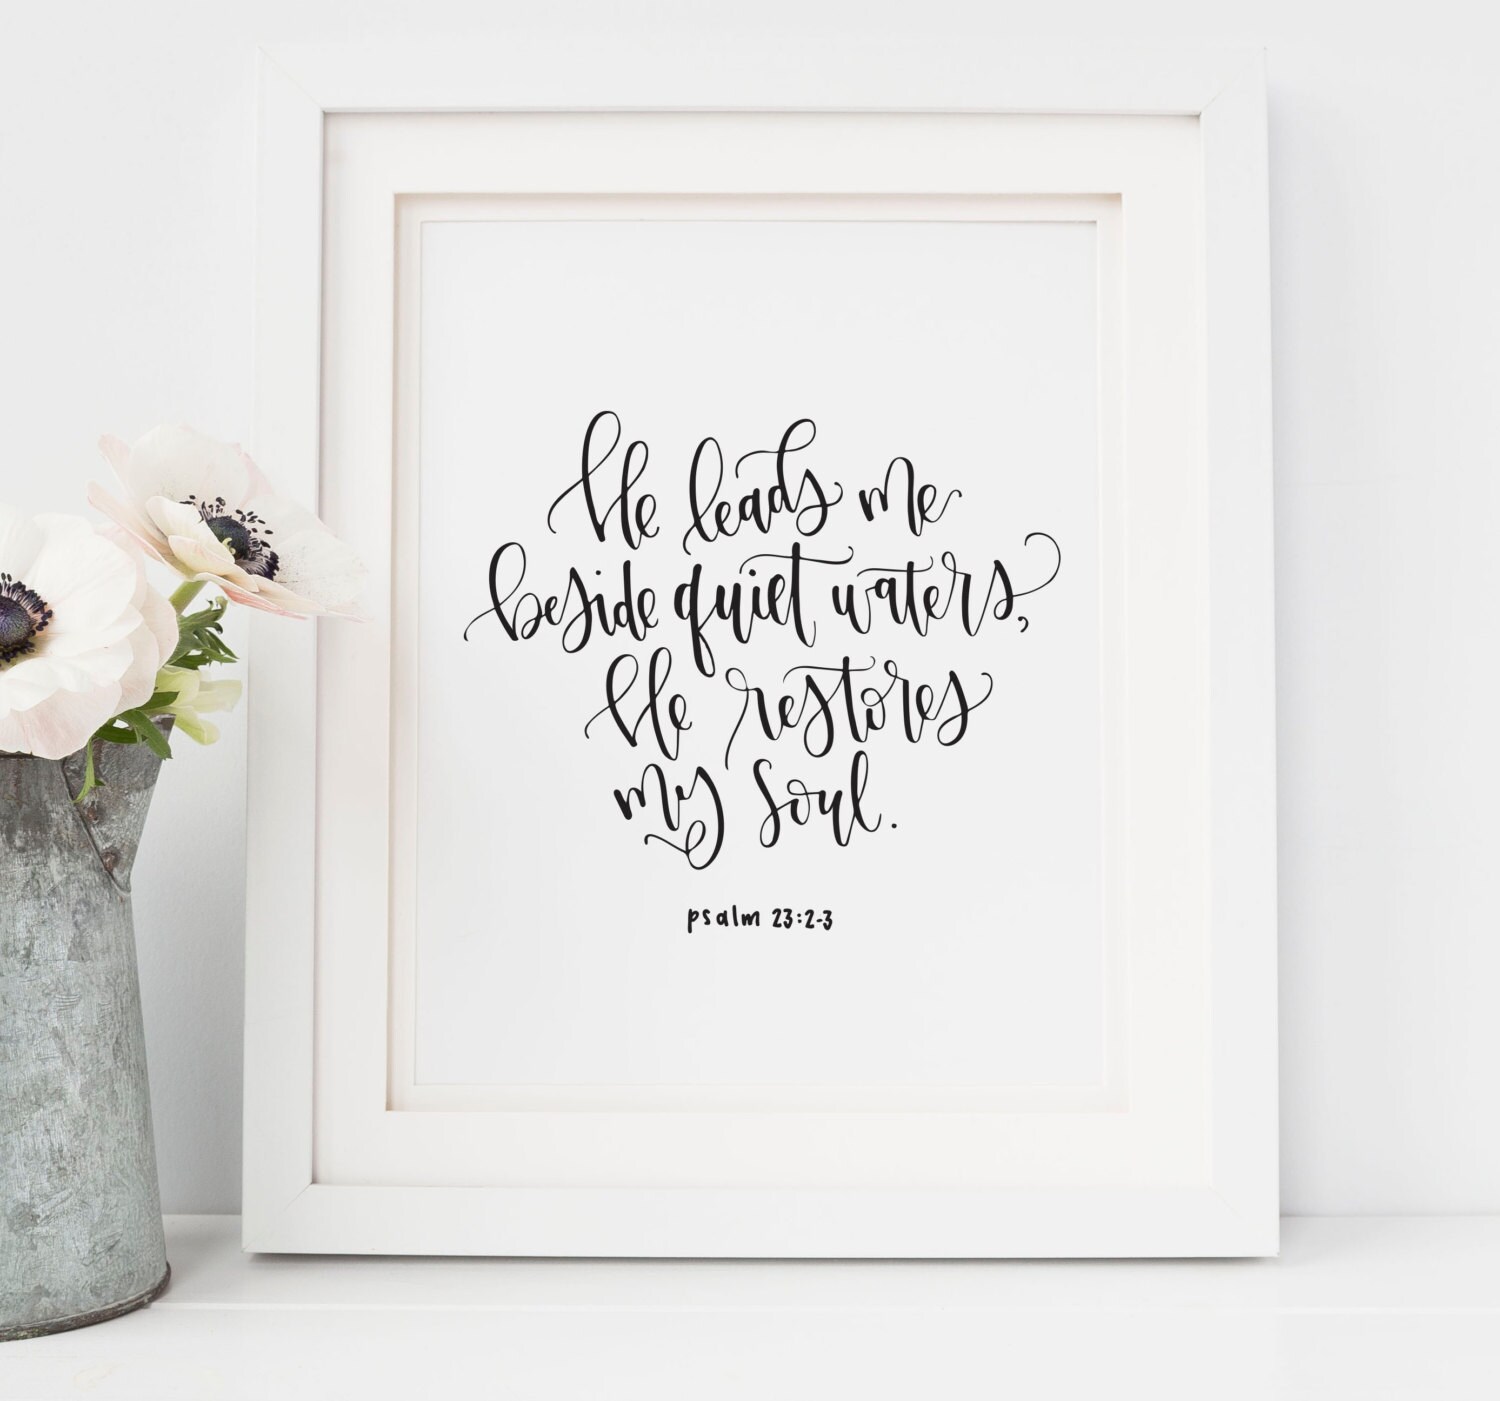 He leads me
beside quiet waters,
He restores
my soul.
psalm 23:2-3